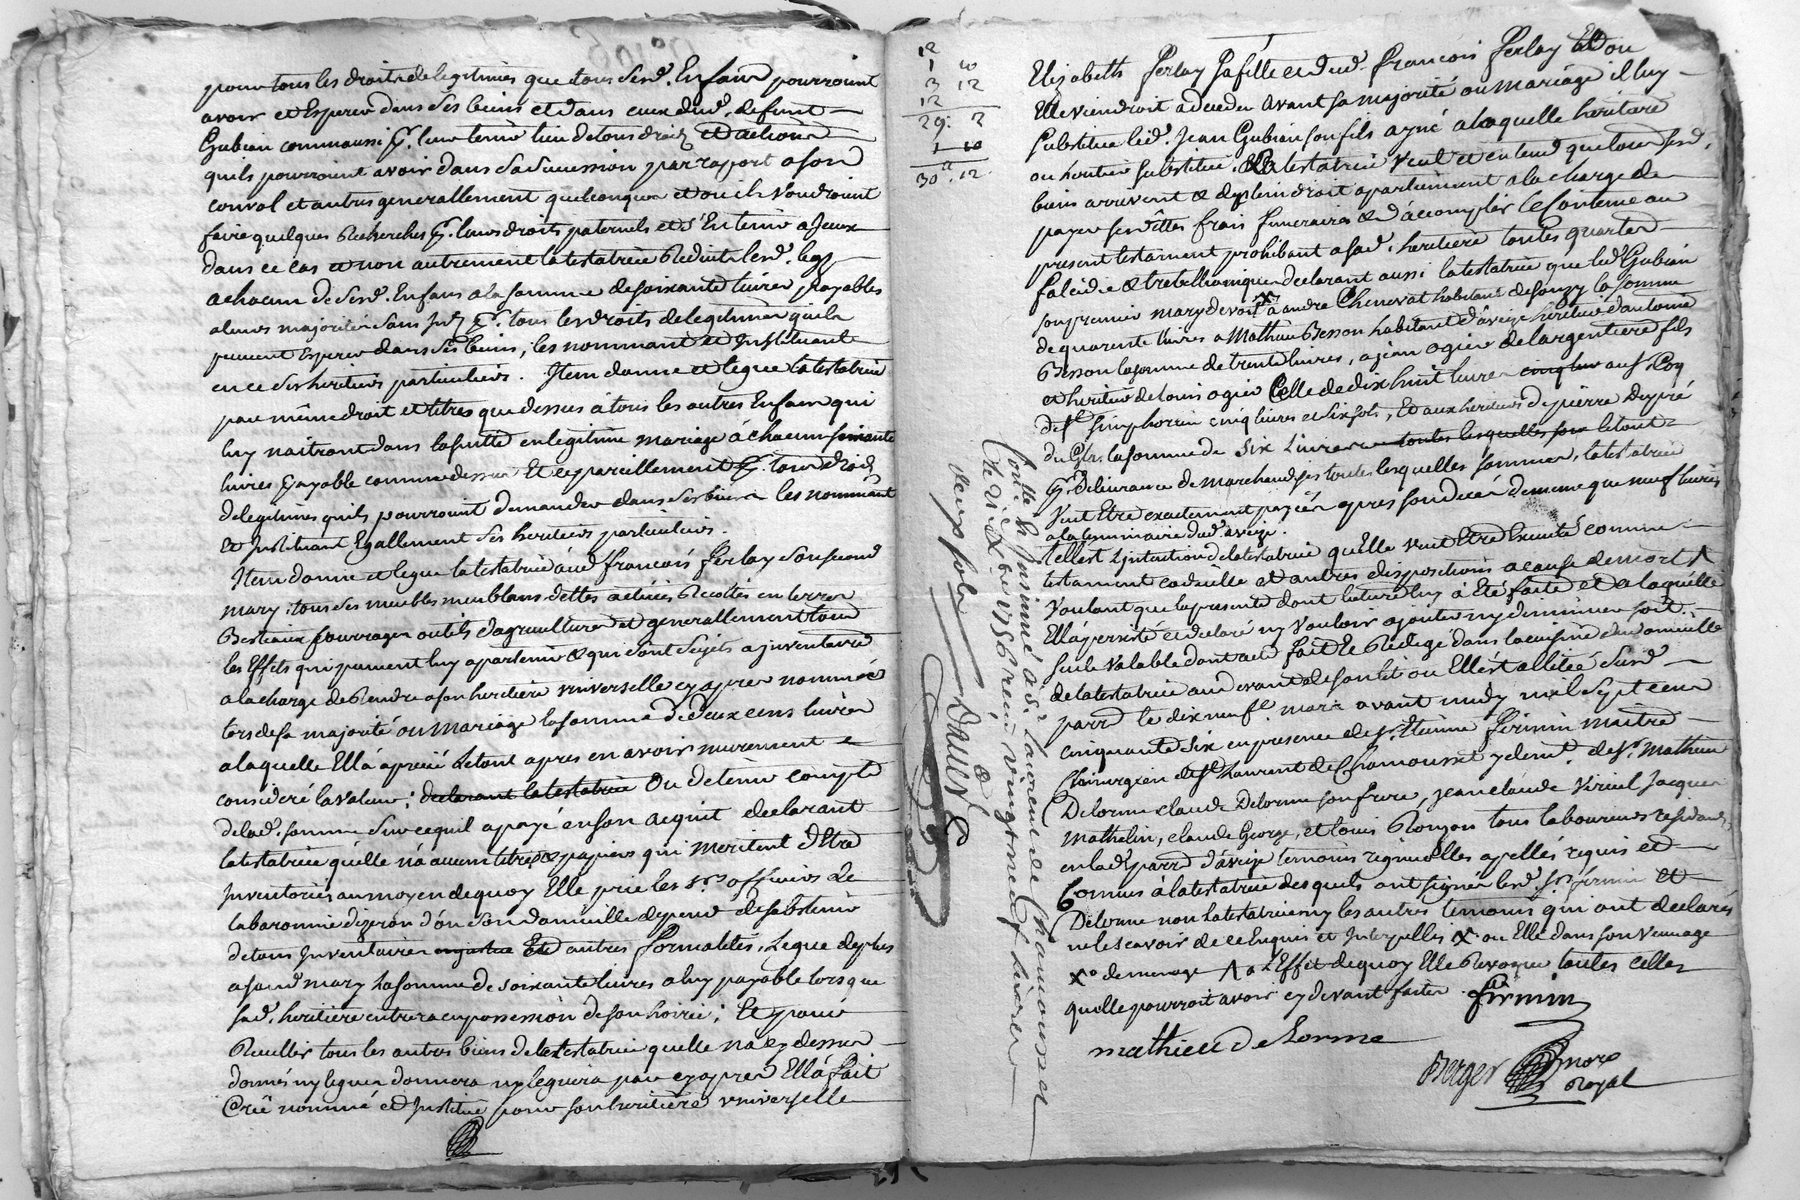 pour tous les droits de legitimes que tous sesd. Enfans pourroient
avoir et Esperer dans ses biens et dans ceux dud. defunt
Gubian comm aussi pr. leur tenir lieu de tous droits et actions
quils pourroient avoir dans sa succession par rapport a son d
convol et autres generallement quelconques et ou ils voudroient
faire quelques Recherches pr. leurs droits paternels et s'En tenir a Jceux
dans ce cas et non autrement la testatrice Reduit lesd. legs
a chacun de sesd. Enfans a la somme de soixante livres payables
a leurs majorités sans Jnt. pr. tous les droits de legitimes quils
peuvent Esperer dans ses biens, les nommant et Jnstituant
en ce ses heritiers particuliers. Jtem donne et legue la testatrice
par même droit et titres que dessus à tous les autres Enfans qui
luy naitront dans la suitte en legitime mariage à chacun soixante
livres payable comme dessus Et ce pareillement pr. tous droits
de legitimes quils pourroient demander dans ses biens les nommant
Et Jnstituant Egallement ses heritiers particuliers.
Jtem donne et legue la testatrice aud. françois ferlay son second
mary, tous ses meubles meublans dettes actives Recoltes en terres
Bestiaux fourrages outils d'agriculture et generallement tous
les Effets qui peuvent luy apartenir & qui sont sujets a jnventaire
a la charge de Rendre a son heritiere universelle cy apres nommée
lors de sa majorité ou Mariage la somme de deux cens livres
a laquelle Ell'à aprecié le tout apres en avoir murement
consideré la valeur; declarant la testatrice Ou de tenir compte
de lad. somme sur ce quil a payé en son acquit declarant
la testatrice qu'elle n'a aucun titres & papiers qui meritent d'Etre
Jnventoriés au moyen de quoy Elle prie les srs. officiers de
la baronnie d'yzeron d'ou son domicille depend de s'abstenir
de tous Jnventaires et autres formalités, Legue de plus
a sond mary la somme de soixante livres a luy payable lorsque
sad. heritiere entrera en possession de son hoirie; Et pour
Recueillir tous les autres biens de la testatrice quelle na cy dessus
donnés ny legués donnera ny leguera par cy apres Ell'à fait
Crée nommé et Jnstitué pour son heritiere universelle
12
1 10
3 12
12
29. 2
1 10
30 . 12
Elizabeth ferlay sa fille et dud. françois ferlay Et ou
Elle viendroit a deceder avant sa majorité ou mariage il luy
substitue led. Jean Gubian son fils ayné a laquelle heritiere
ou heritier substitué. la testatrice veut et entend que tous sesd.
biens arrivent & de plein droit apartiennent a la charge de
payer sesd. dettes frais funeraires & d'accomplir le contenu au
present testament prohibant a sad. heritiere toutes quartes
falcidie & trebellianique declarant aussi la testatrice que led Gubian
son premier mary devoit x a andré Chenevat habitant de souzy la somme
de quarente livres a Mathieu Besson habitant d'aveize heritier d'antoine
Besson la somme de trente livres, a jean ogier de largentiere fils
et heritier de louis ogier Celle de dix huit livres au s. Roy
de st. simphorien cinq livres et six sols, Et aux heritiers de pierre Dupré
la somme de six Livres toutes lesquelles le tout
pr. Delivrance de marchandises toutes lesquelles sommes, la testatrice
veut Etre exactement payées apres son decés de meme que neuf livres
a la luminaire dud. aveize.
Telle est l'jntention de la testatrice qu'elle veut Etre Executé comme
testament codicille et autres dispositions a cause de mort
Voulant que la presente dont lecture luy à Eté faite et a laquelle
Ell'a persisté et declaré ny vouloir ajouter ny diminuer soit
seule valable dont acte fait & Redigé dans la cuisine du domicille
de la testatrice au devant de son lit ou Ell'est allitée susd.
parr. le dix neufe. mars avant midy mil sept cens
cinquante six en presence de sr. Etienne firmin maitre
Chirurgien de st Laurent de Chamousset y demt. de sr. Mathieu
Delorme claude Delorme son frere, jean claude viriel Jacques
Mathelin, claude George, et louis Ronzon tous laboureurs residans
en lad. parr d'aveize temoins apellés requis et
Connus a la testatrice desquels ont signés lesd. srs. firmin et
Delorme non la testatrice ny les autres temoins qui ont declarés
ne le scavoir de ce Enquis et Jnterpellés x ou Elle dans son veuvage
xo de menage A a L'Effet de quoy Elle Revoque toutes celles
quelle pourroit avoir cy devant faites firmin
mathieu de lorme
Berger nore
Royal
Conlle. & Jnsinué a st. laurent de Chamousset
Ce xbre 1756 Receu vingt neuf livres
deux sols